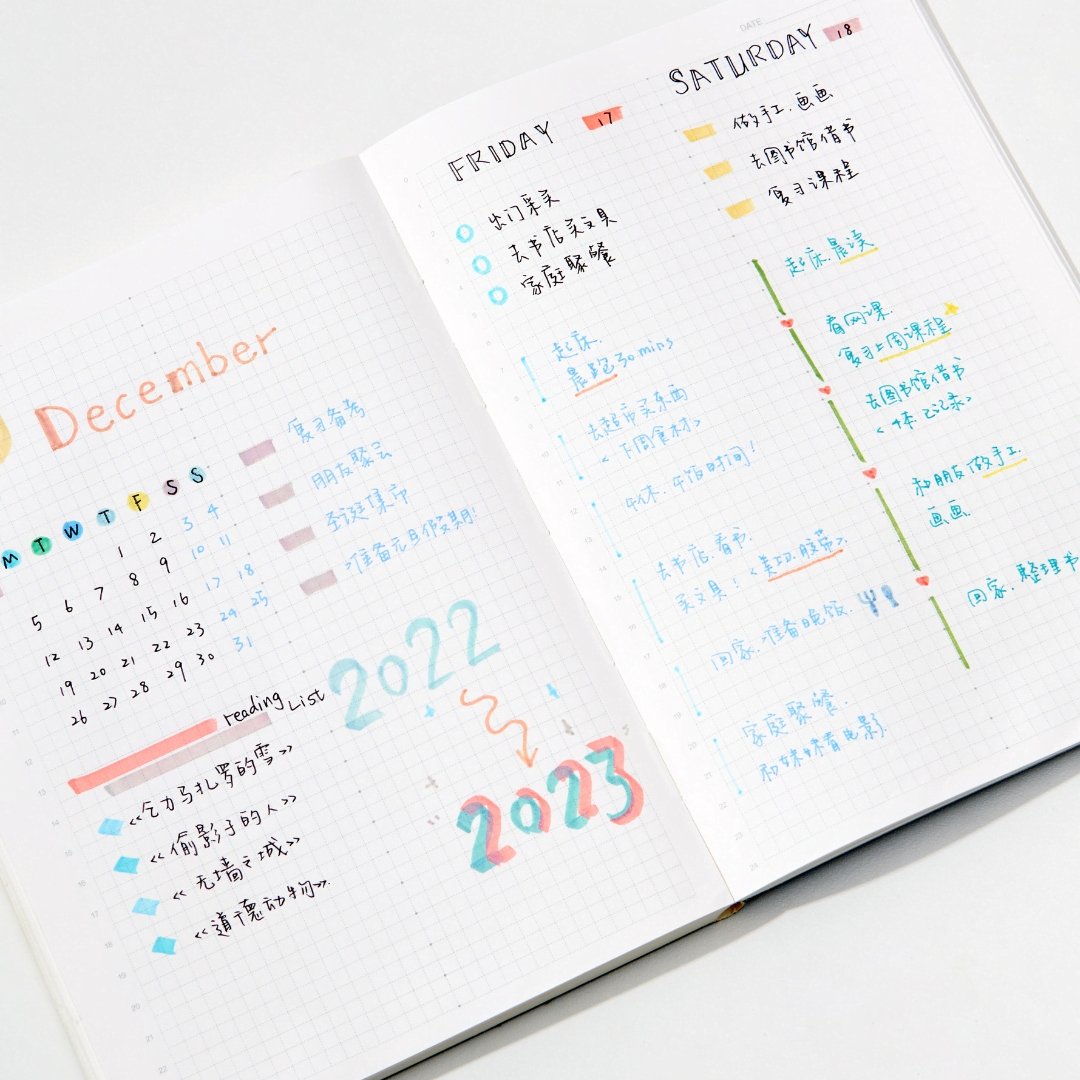 December
M T W T F S S
1 2 3 4
5 6 7 8 9 10 11
12 13 14 15 16 17 18
19 20 21 22 23 24 25
26 27 28 29 30 31
复习备考
朋友聚会
圣诞集市
准备元旦假期!
2022
2023
reading List
《乞力马扎罗的雪》
《偷影子的人》
《无墙之城》
《道德动物》
FRIDAY 17
出门采买
去书店买文具
家庭聚餐
起床.
晨跑30mins
去超市买东西
<下周食材>
午休.午饭时间!
去书店看书.
买文具!<美工.胶带>.
回家.准备晚饭.
家庭聚餐.
和妹妹看电影.
DATE
SATURDAY 18
做手工.画画
去图书馆借书
复习课程
起床.晨读
看网课.
复习上周课程
去图书馆借书
<4本.记录>
和朋友做手工.
画画.
回家.整理书